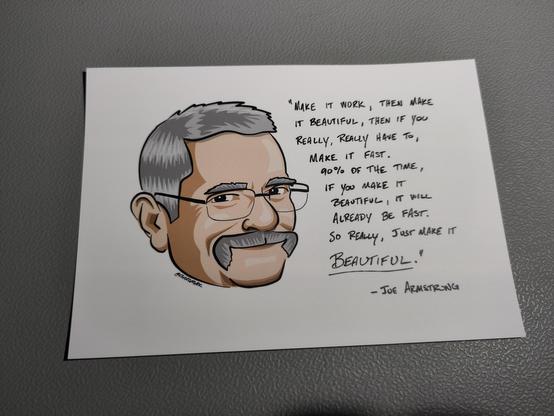 "MAKE IT WORK, THEN MAKE
IT BEAUTIFUL, THEN IF YOU
REALLY, REALLY HAVE TO,
MAKE IT FAST.
90% OF THE TIME,
IF YOU MAKE IT
BEAUTIFUL, IT WILL
ALREADY BE FAST.
SO REALLY, JUST MAKE IT
BEAUTIFUL."
—JOE ARMSTRONG